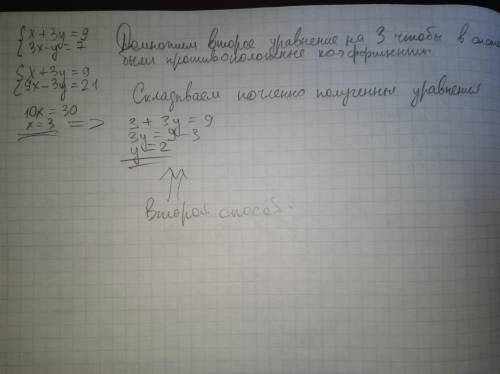 {x + 3y = 9
{3x - y = 7
Домножим второе уравнение на 3 чтобы в
были противоположные коэффициенты
{x + 3y = 9
{9x - 3y = 21
Складываем почленно полученные уравнения
10x = 30
x = 3 =>
3 + 3y = 9
3y = 9 - 3
y = 2
Второй способ.